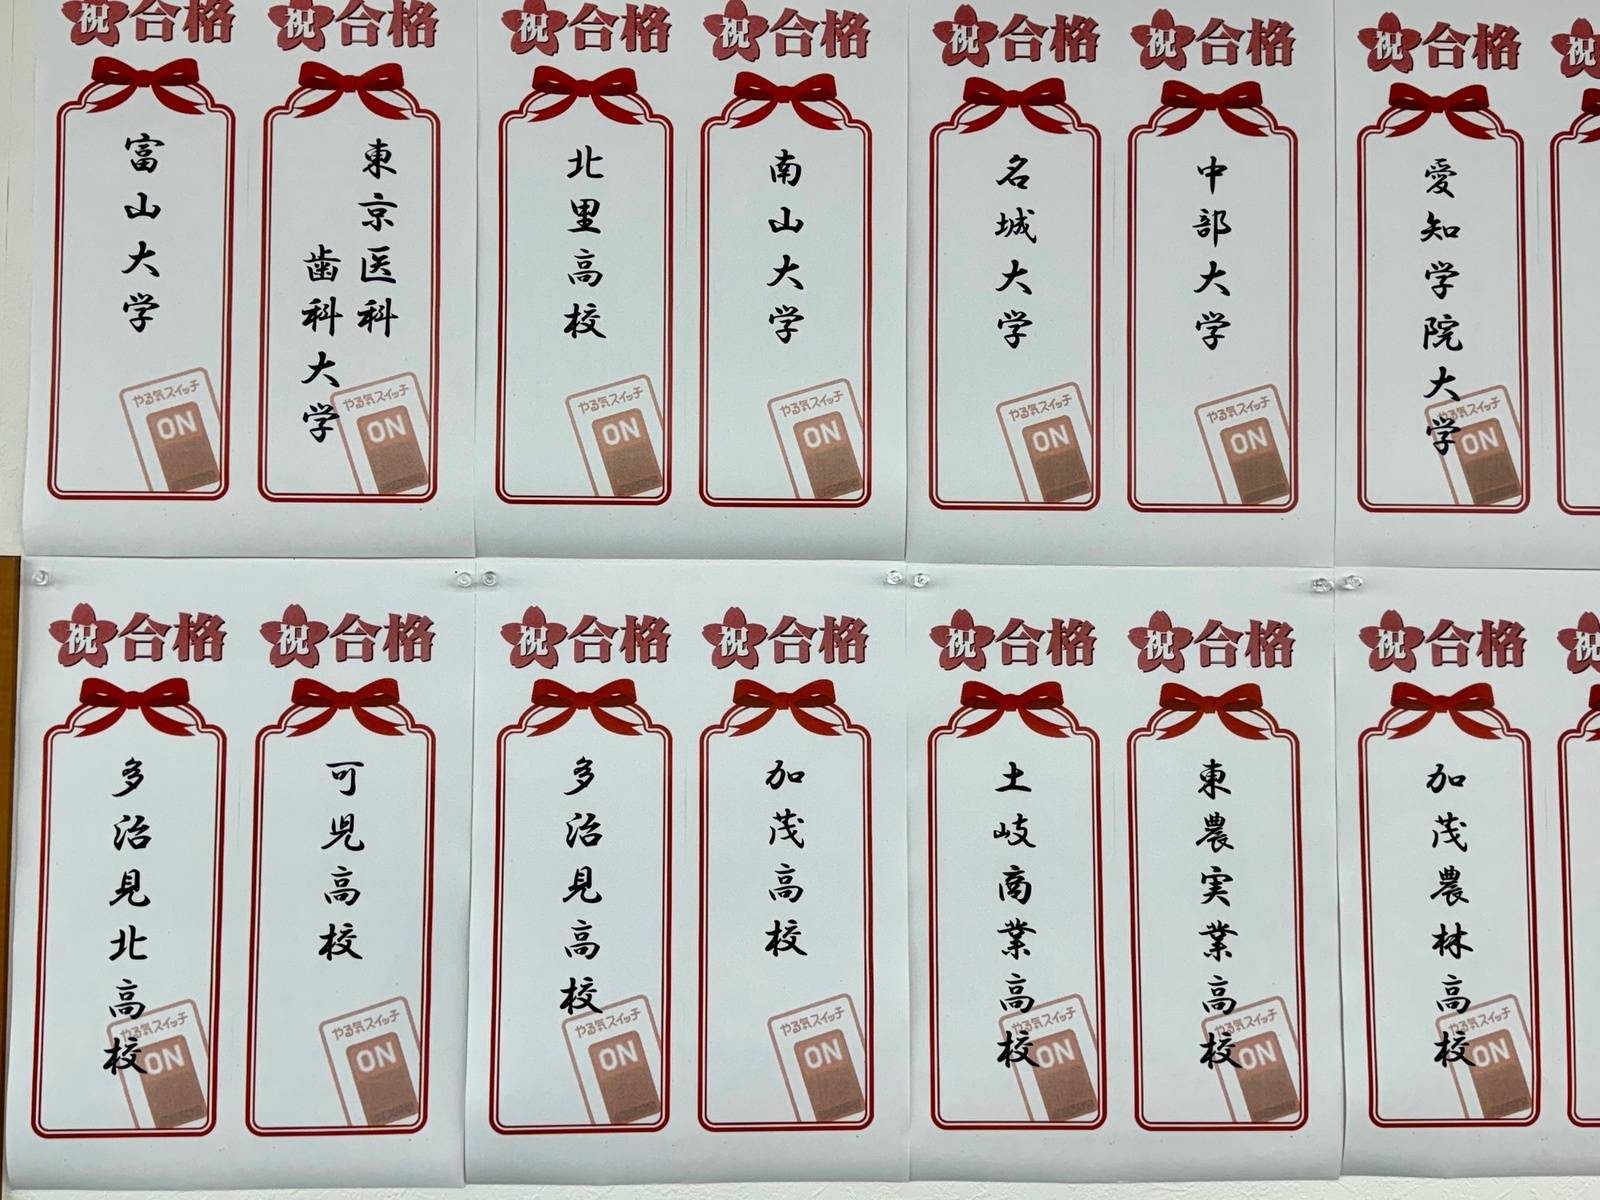 祝合格
富山大学
やる気スイッチ
ON
祝合格
東京医科
歯科大学
やる気スイッチ
ON
祝合格
北里高校
やる気スイッチ
ON
祝合格
南山大学
やる気スイッチ
ON
祝合格
名城大学
やる気スイッチ
ON
祝合格
中部大学
やる気スイッチ
ON
祝合格
愛知学院大学
やる気スイッチ
ON
祝
祝合格
多治見北高校
やる気スイッチ
ON
祝合格
可児高校
やる気スイッチ
ON
祝合格
多治見高校
やる気スイッチ
ON
祝合格
加茂高校
やる気スイッチ
ON
祝合格
土岐商業高校
やる気スイッチ
ON
祝合格
東濃実業高校
やる気スイッチ
ON
祝合格
加茂農林高校
やる気スイッチ
ON
祝